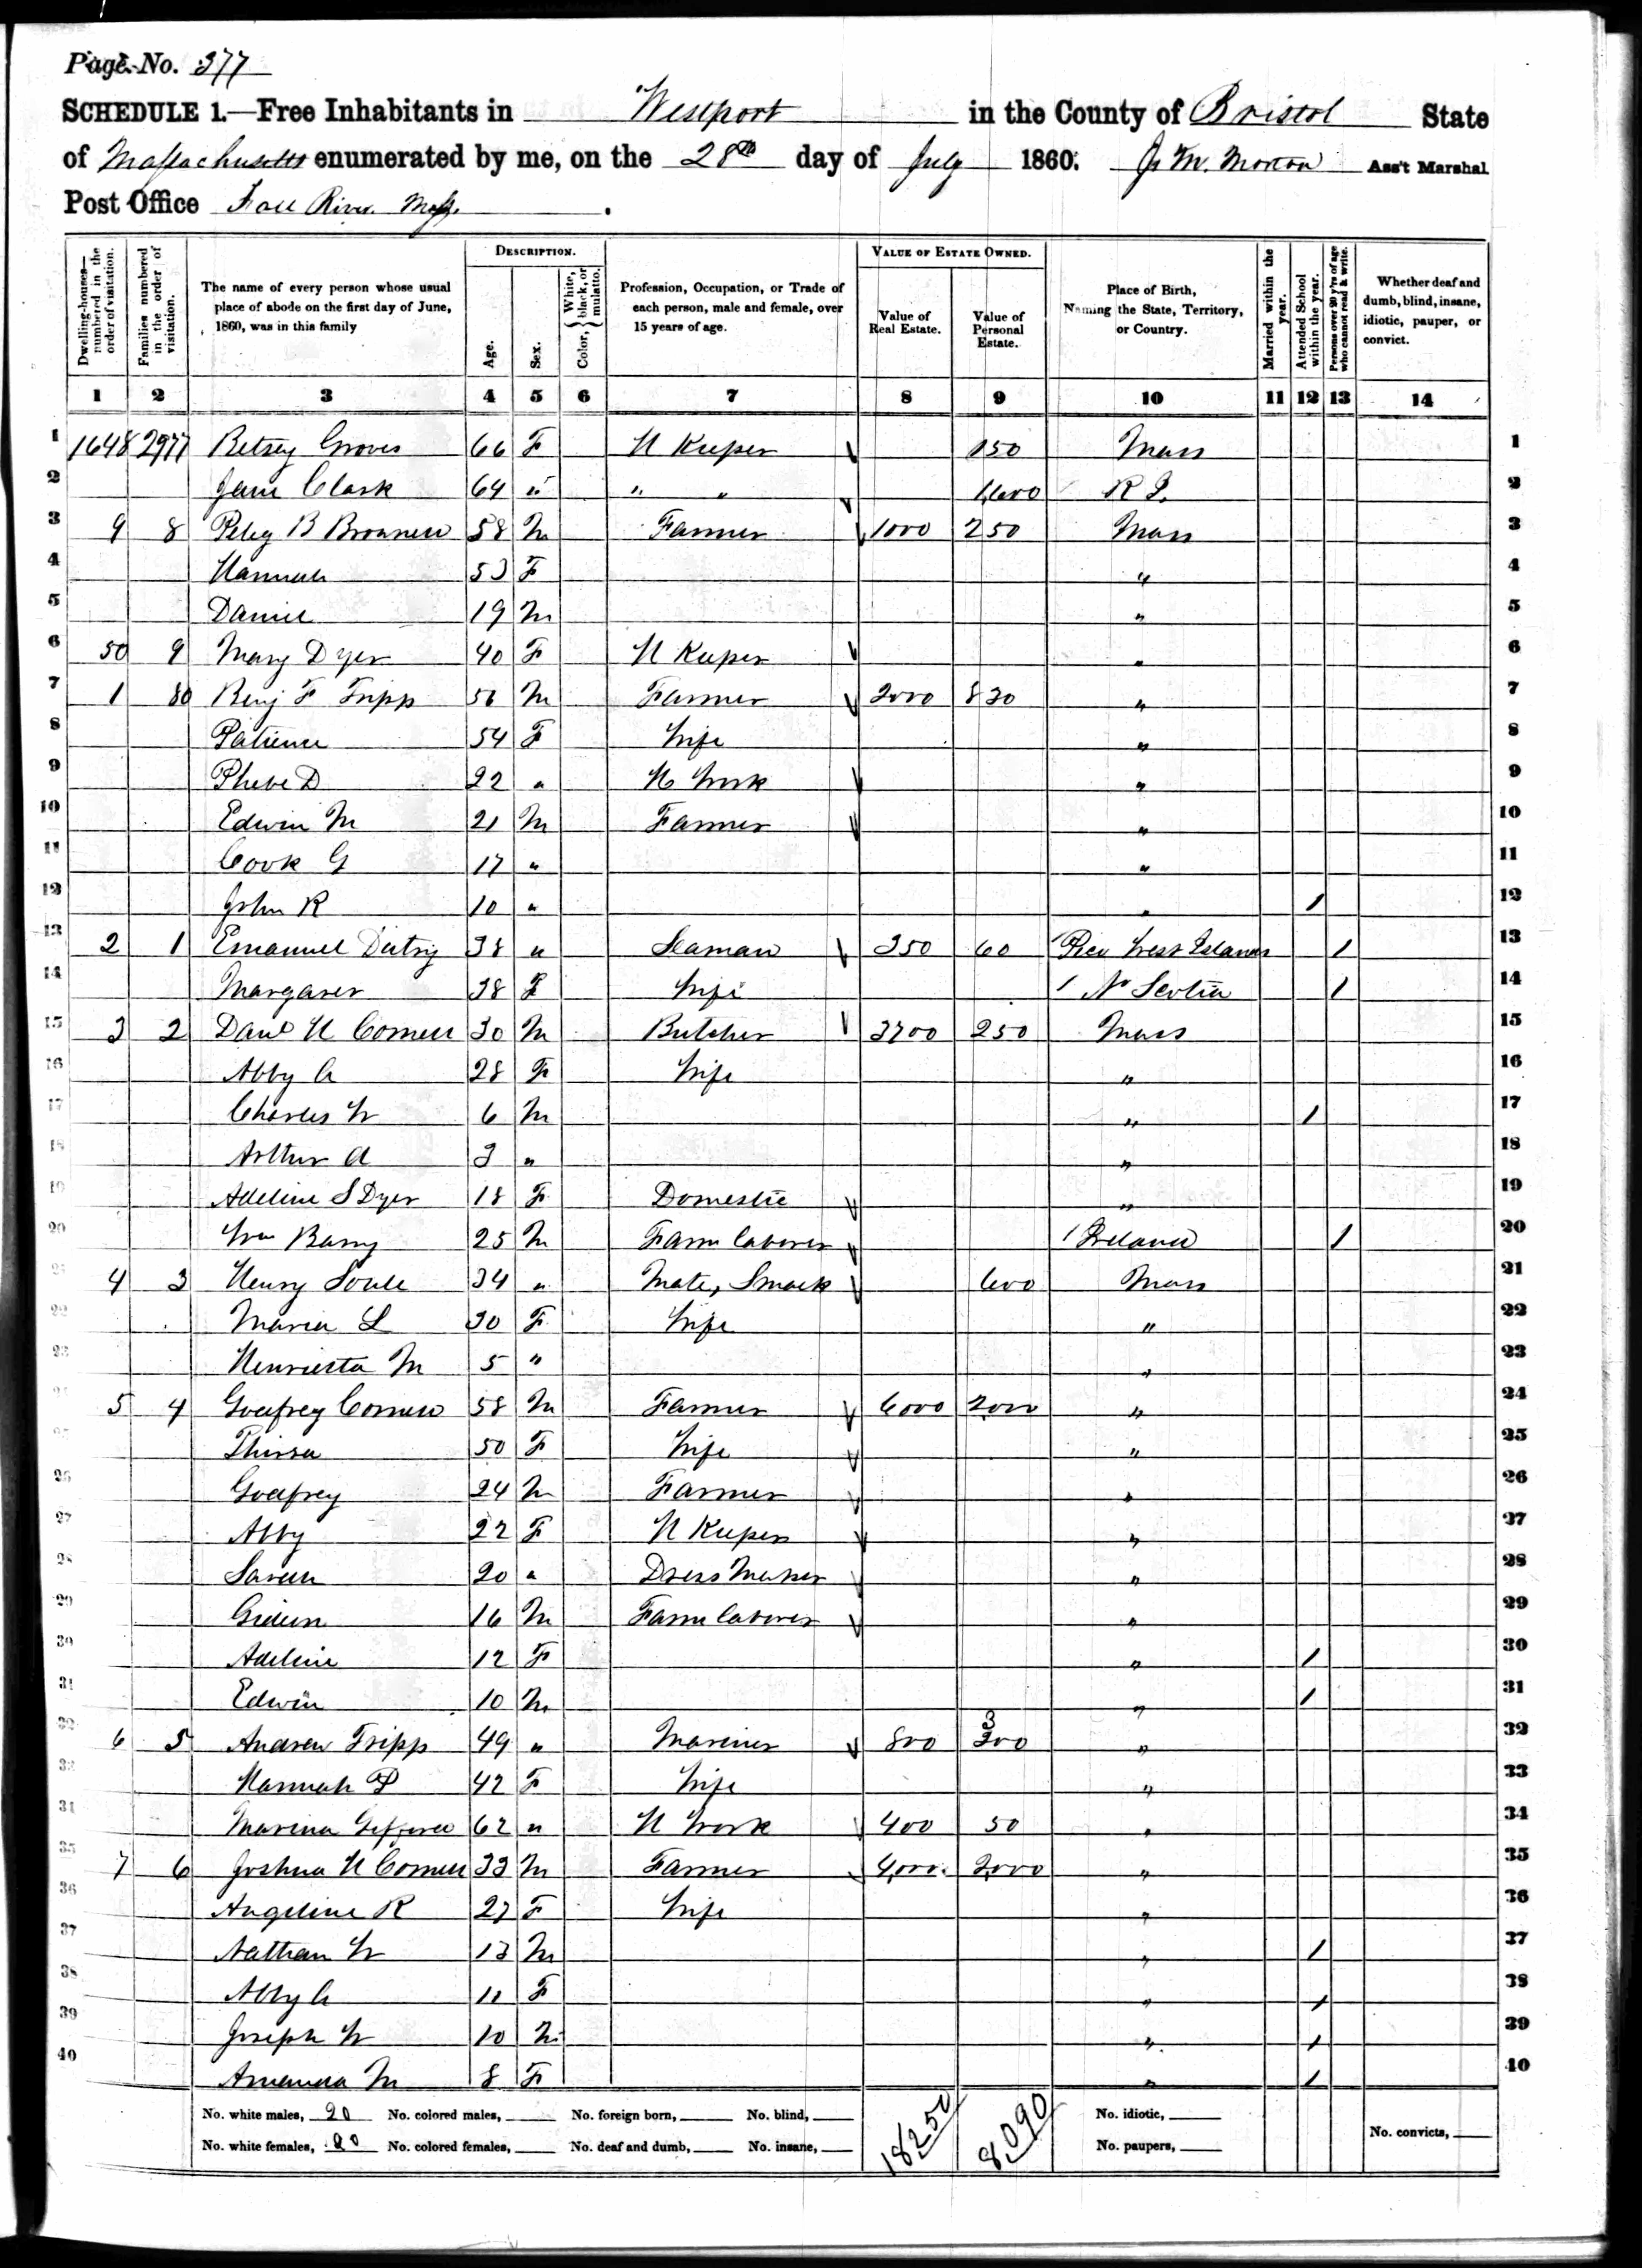 Page No. 377
SCHEDULE 1.—Free Inhabitants in Westport in the County of Bristol State
of Massachusetts enumerated by me, on the 28th day of July 1860. J. M. Morton Ass't Marshal
Post Office Fall River. Mass.
Dwelling-houses—numbered in the order of visitation. Families numbered in the order of visitation. The name of every person whose usual place of abode on the first day of June, 1860, was in this family DESCRIPTION. Age. Sex. Color, White, black, or mulatto. Profession, Occupation, or Trade of each person, male and female, over 15 years of age. VALUE OF ESTATE OWNED. Value of Real Estate. Value of Personal Estate. Place of Birth, Naming the State, Territory, or Country. Married within the year. Attended School within the year. Persons over 20 y'rs of age who cannot read & write. Whether deaf and dumb, blind, insane, idiotic, pauper, or convict.
1 2 3 4 5 6 7 8 9 10 11 12 13 14
1 1648 2977 Betsey Groves 66 F H Keeper 150 Mass 1
2 Jane Clark 64 " " " 1,600 R I. 2
3 9 8 Peleg B Brownell 58 M Farmer 1000 250 Mass 3
4 Hannah 53 F " 4
5 Daniel 19 M " 5
6 50 9 Mary Dyer 40 F H Keeper " 6
7 1 80 Benj F Tripp 56 M Farmer 2000 830 " 7
8 Patience 54 F Wife " 8
9 Phebe D 22 " H Work " 9
10 Edwin M 21 M Farmer " 10
11 Cook G 17 " " 11
12 John R 10 " " / 12
13 2 1 Emanuel 38 " Seaman 350 60 West Islands / 13
14 Margaret 38 F Wife N Scotia / 14
15 3 2 Danl H Cornell 30 M Butcher 3700 250 Mass 15
16 Abby A 28 F Wife " 16
17 Charles W 6 M " / 17
18 Arthur A 3 " " 18
19 Adeline S Dyer 18 F Domestic " 19
20 Wm Barry 25 M Farm laborer Ireland / 20
21 4 3 Henry Soule 34 " Mate, Smack 600 Mass 21
22 Maria L 30 F Wife " 22
23 Henrietta M 5 " " 23
24 5 4 Godfrey Cornell 58 M Farmer 6000 2000 " 24
25 Thirsa 50 F Wife " 25
26 Godfrey 24 M Farmer " 26
27 Abby 22 F H Keeper " 27
28 Sarah 20 " Dress Maker " 28
29 Gideon 16 M Farm laborer " 29
30 Adeline 12 F " / 30
31 Edwin 10 M " / 31
32 6 5 Andrew Tripp 49 " Mariner 800 300 " 32
33 Hannah P 42 F Wife " 33
34 62 " H Work 400 50 " 34
35 7 6 Joshua H Cornell 33 M Farmer 4,000 2,000 " 35
36 Angeline R 27 F Wife " 36
37 Nathan W 13 M " / 37
38 Abby A 11 F " / 38
39 Joseph W 10 M " / 39
40 Amanda M 8 F " / 40
No. white males, 20 No. colored males, No. foreign born, No. blind, 18250 8,090 No. idiotic, No. convicts,
No. white females, 20 No. colored females, No. deaf and dumb, No. insane, No. paupers,